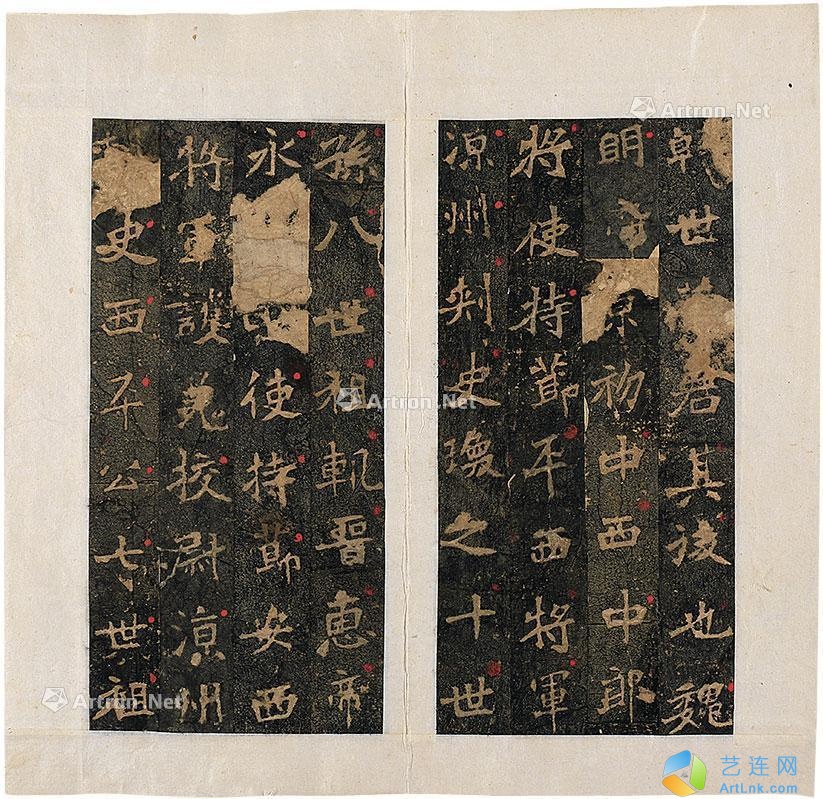 幹世著君其後也魏
明帝景初中西中郎
將使持節平西將軍
涼州刾史瑍之十世
孫八世祖軌晉惠帝
永使持節安西
將軍護羌挍尉涼州
史西平公七世祖
Artron.Net
Artron.Net
Artron.Net
艺连网
ArtLnk.com